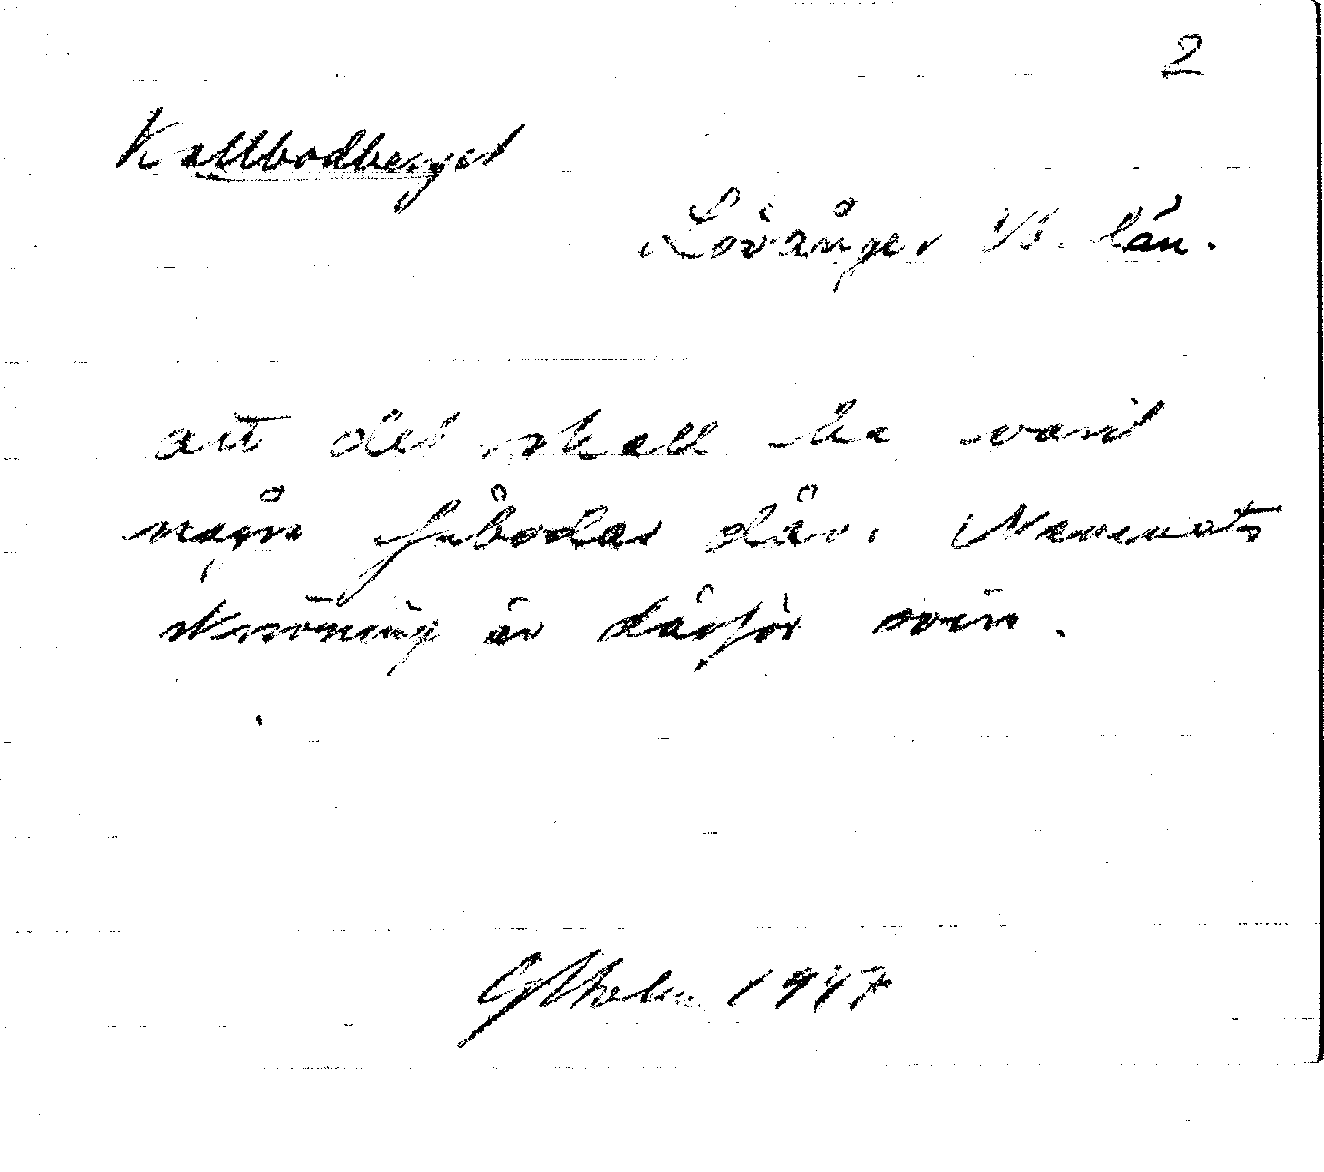 2
Kallbodberget
Lövånger Vb. län.
att det skall ha varit
några fäbodar där. Namnets
skrivning är därför oviss.
GHolm 1947